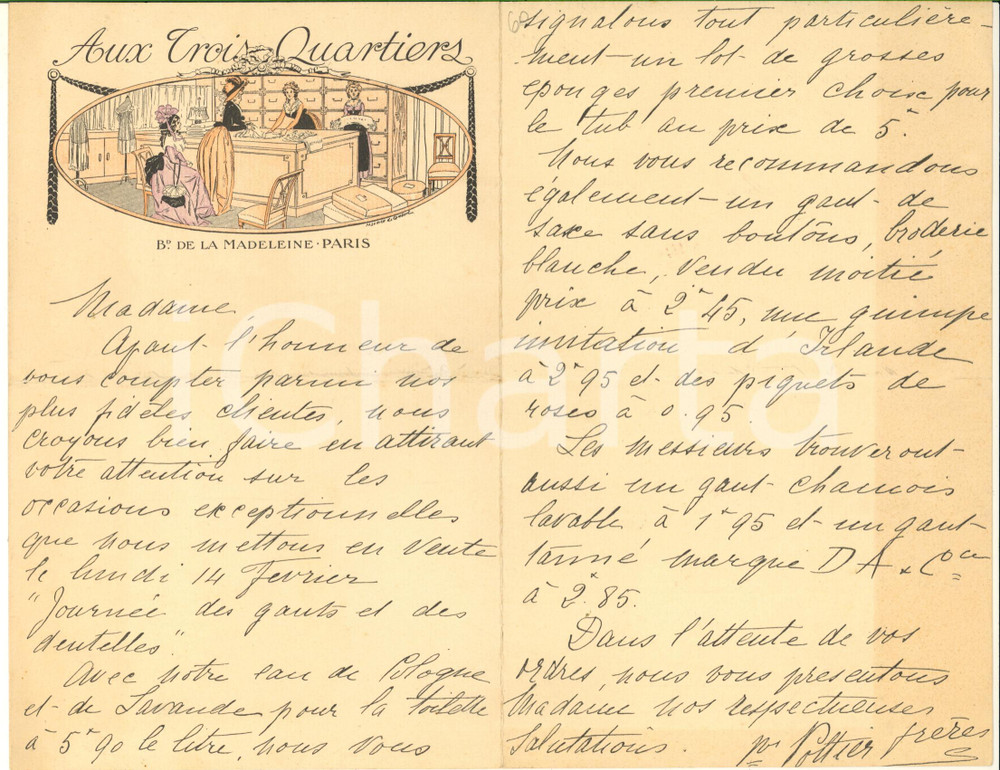 Aux Trois Quartiers
Bd DE LA MADELEINE · PARIS
Madame,
Ayant l'honneur de
vous compter parmi nos
plus fidèles clientes, nous
croyons bien faire en attirant
votre attention sur les
occasions exceptionnelles
que nous mettons en vente
le lundi 14 Fevrier
"Journée des gants et des
dentelles"
Avec notre eau de Cologne
et de Lavande pour la toilette
à 5f 90 le litre, nous vous
signalons tout particulière-
ment un lot de grosses
eponges premier choix pour
le tub au prix de 5f.
Nous vous recommandons
également un gant de
saxe sans boutons, broderie
blanche, vendu moitié
prix à 2f 45, une guimpe
imitation d'Irlande
à 2f 95 et des piquets de
roses à 0.95
Les messieurs trouveront
aussi un gant chamois
lavable à 1f 95 et un gant
tanné marque D A & Cie
à 2f.85.
Dans l'attente de vos
ordres, nous vous presentons
Madame nos respectueuses
Salutations.
pr Pottier frères
iCharta